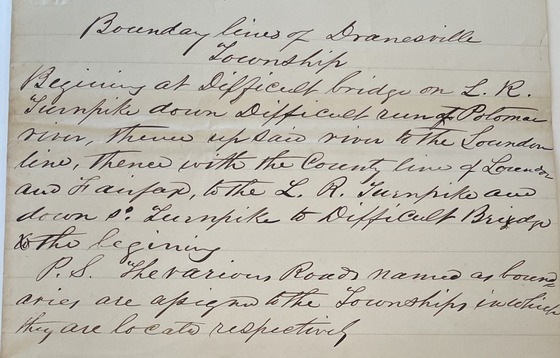 Bounday lines of Dranesville
Township
Begining at Difficult bridge on L. R.
Turnpike down Difficult run to Potomac
river, thence up said river to the Loundon
line, thence with the County line of Loundon
and Fairfax, to the L. R. Turnpike and
down sd. Turnpike to Difficult Bridge
to the begining
P.S. The various Roads named as bound
aries are assigned to the Townships in which
they are locate respectively